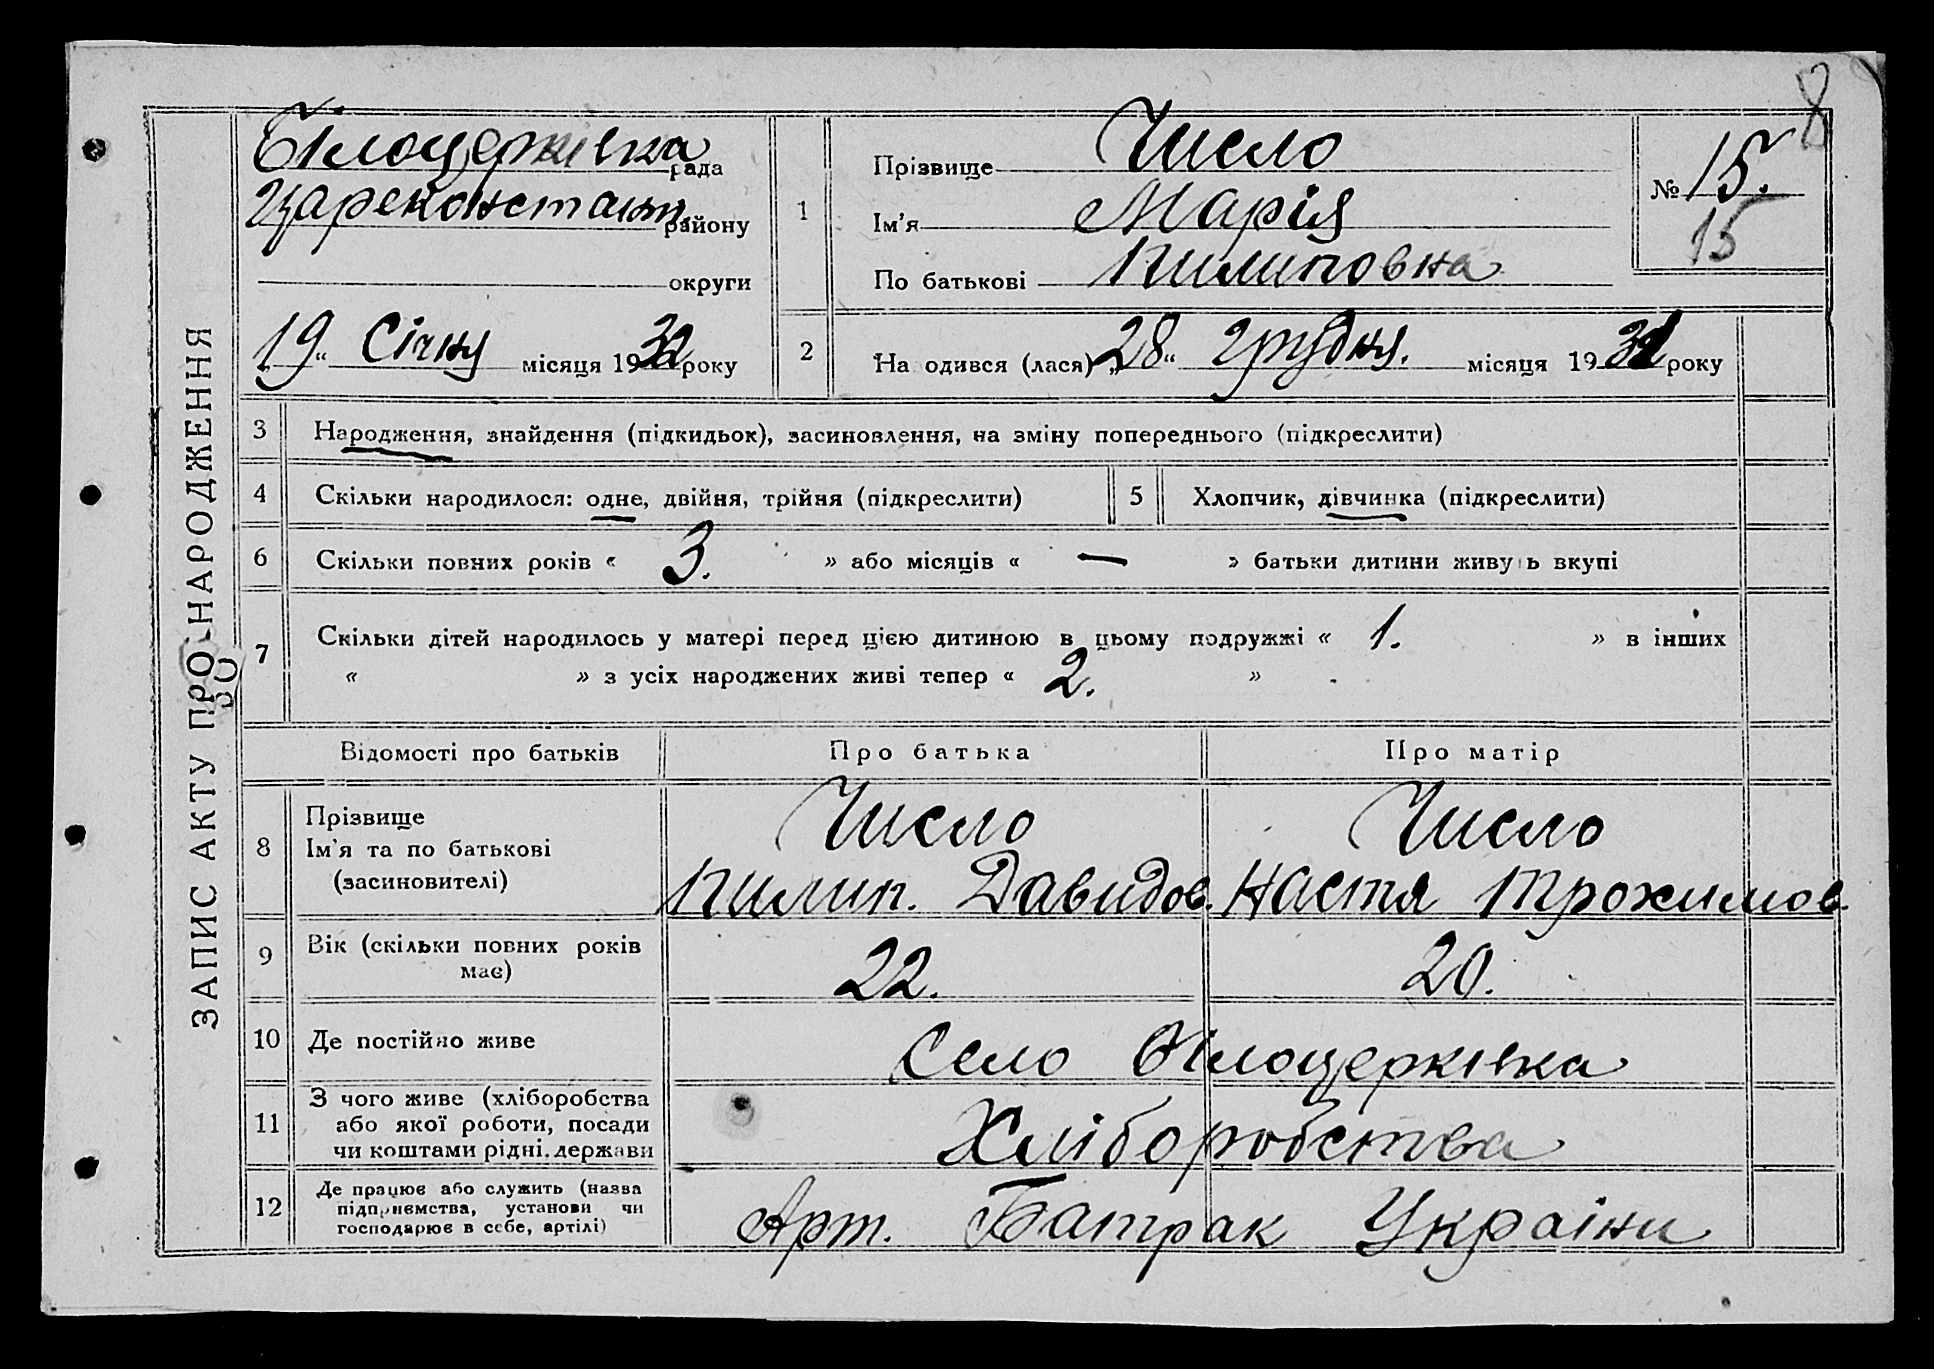 8
ЗАПИС АКТУ ПРО НАРОДЖЕННЯ
30
Білоцерківка рада
Цареконстант. району
округи
„19“ Січня місяця 1932 року
1
Прізвище Число
Ім'я Марія
По батькові Пилиповна
№ 15.
15
2
На одився (лася) „28“ грудня. місяця 1931 року
3 Народження, знайдення (підкидьок), засиновлення, на зміну попереднього (підкреслити)
4 Скільки народилося: одне, двійня, трійня (підкреслити) 5 Хлопчик, дівчинка (підкреслити)
6 Скільки повних років « 3. » або місяців « — » батьки дитини живу ь вкупі
7 Скільки дітей народилось у матері перед цією дитиною в цьому подружжі « 1. » в інших
« » з усіх народжених живі тепер « 2. »
Відомості про батьків Про батька Про матір
8 Прізвище
Ім'я та по батькові
(засиновителі)
Число
Пилип. Давидов.
Число
Настя Трохимов.
9 Вік (скільки повних років
має)
22. 20.
10 Де постійно живе Село Білоцерківка
11 З чого живе (хліборобства
або якої роботи, посади
чи коштами рідні. держави
Хліборобства
12 Де працює або служить (назва
підприємства, установи чи
господарює в себе, артілі)
Арт. Батрак України